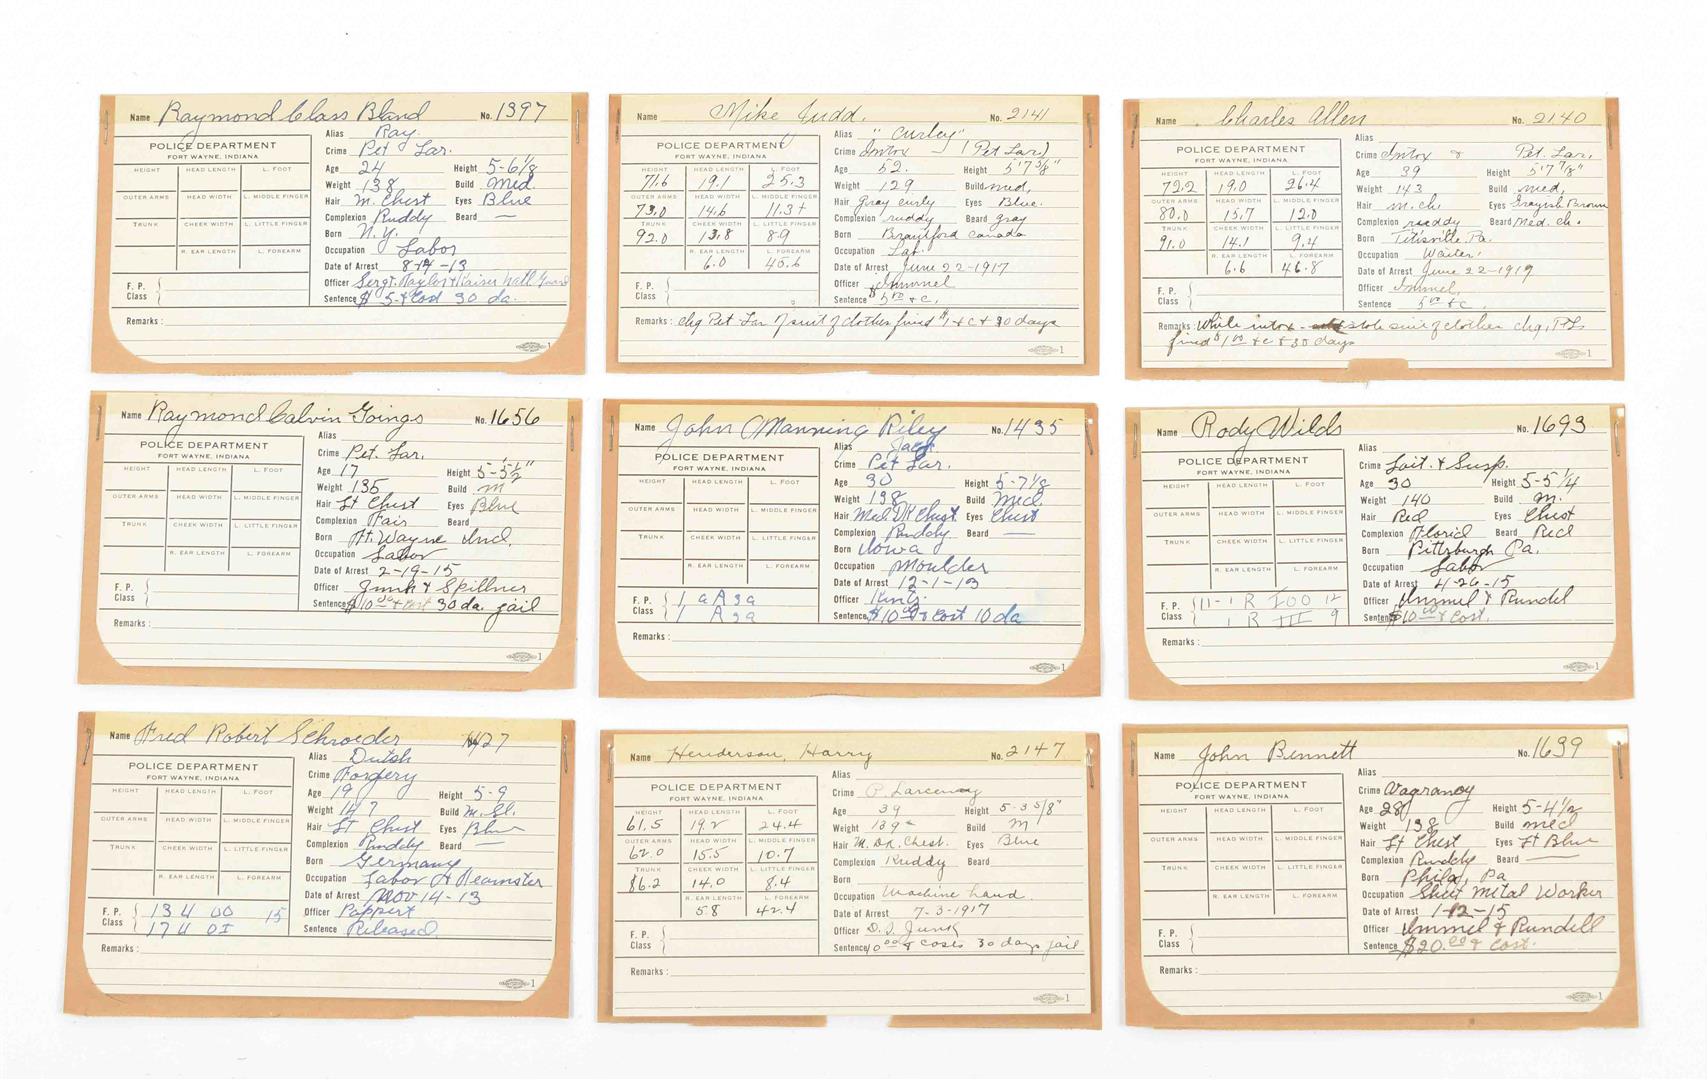 Name Raymond Class Bland No. 1397
POLICE DEPARTMENT
FORT WAYNE, INDIANA
HEIGHT HEAD LENGTH L. FOOT
OUTER ARMS HEAD WIDTH L. MIDDLE FINGER
TRUNK CHEEK WIDTH L. LITTLE FINGER
R. EAR LENGTH L. FOREARM
F. P. Class
Alias Ray.
Crime Pet Lar.
Age 24 Height 5-6 1/8
Weight 138 Build Med.
Hair M. Chest Eyes Blue
Complexion Ruddy Beard —
Born N.Y.
Occupation Labor
Date of Arrest 8-14-13
Officer Sergt. Taylor + Kaiser
Sentence $5 + Cost 30 da.
Remarks:
1
Name Mike Judd. No. 2141
POLICE DEPARTMENT
FORT WAYNE, INDIANA
HEIGHT HEAD LENGTH L. FOOT
71.6 19.1 25.3
OUTER ARMS HEAD WIDTH L. MIDDLE FINGER
73.0 14.6 11.3+
TRUNK CHEEK WIDTH L. LITTLE FINGER
92.0 13.8 8.9
R. EAR LENGTH L. FOREARM
6.0 45.6
F. P. Class
Alias "Curley"
Crime Intox (Pet Lar.)
Age 52. Height 5'7 5/8"
Weight 129 Build med,
Hair Gray curly Eyes Blue.
Complexion ruddy Beard gray
Born Brantford Canada
Occupation Lab.
Date of Arrest June 22-1917
Officer Immel
Sentence $5 00 + C.
Remarks: chg Pet Lar of suit of clothes fined $1 + c + 30 days
1
Name Charles Allen No. 2140
POLICE DEPARTMENT
FORT WAYNE, INDIANA
HEIGHT HEAD LENGTH L. FOOT
72.2 19.0 26.4
OUTER ARMS HEAD WIDTH L. MIDDLE FINGER
80.0 15.7 12.0
TRUNK CHEEK WIDTH L. LITTLE FINGER
91.0 14.1 9.4
R. EAR LENGTH L. FOREARM
6.6 46.8
F. P. Class
Alias
Crime Intox & Pet. Lar.
Age 39 Height 5'7 7/8"
Weight 143 Build med,
Hair m. ch. Eyes Grayish Brown
Complexion ruddy Beard Med. ch.
Born Titisville. Pa.
Occupation Waiter.
Date of Arrest June 22-1917
Officer Immel,
Sentence 5 00 + c.
Remarks: While intox stole suit of clothes chg. P.L.
fined $1 00 + c + 30 days
1
Name Raymond Calvin Goings No. 1656
POLICE DEPARTMENT
FORT WAYNE, INDIANA
HEIGHT HEAD LENGTH L. FOOT
OUTER ARMS HEAD WIDTH L. MIDDLE FINGER
TRUNK CHEEK WIDTH L. LITTLE FINGER
R. EAR LENGTH L. FOREARM
F. P. Class
Alias
Crime Pet. Lar.
Age 17 Height 5-5 1/2"
Weight 135 Build M
Hair Lt Chest Eyes Blue
Complexion Fair Beard
Born Ft. Wayne Ind.
Occupation Labor
Date of Arrest 2-19-15
Officer Junk & Spillner
Sentence $10 00 + Cost 30 da. jail
Remarks:
1
Name John Manning Riley No. 1435
POLICE DEPARTMENT
FORT WAYNE, INDIANA
HEIGHT HEAD LENGTH L. FOOT
OUTER ARMS HEAD WIDTH L. MIDDLE FINGER
TRUNK CHEEK WIDTH L. LITTLE FINGER
R. EAR LENGTH L. FOREARM
F. P. Class 1 a A 3 a
1 A 3 a
Alias Jack
Crime Pet Lar.
Age 30 Height 5-7 1/8
Weight 138 Build Med.
Hair Med Dk Chest. Eyes Chest
Complexion Ruddy Beard —
Born Iowa
Occupation Moulder
Date of Arrest 12-1-13
Officer King.
Sentence $10 00 & cost 10 da
Remarks:
1
Name Rody Wilds No. 1693
POLICE DEPARTMENT
FORT WAYNE, INDIANA
HEIGHT HEAD LENGTH L. FOOT
OUTER ARMS HEAD WIDTH L. MIDDLE FINGER
TRUNK CHEEK WIDTH L. LITTLE FINGER
R. EAR LENGTH L. FOREARM
F. P. Class 11-1 R IOO 12
1 R III 9
Alias
Crime Loit. & Susp.
Age 30 Height 5-5 1/4
Weight 140 Build M.
Hair Red Eyes Chest
Complexion Florid Beard Red
Born Pittsburgh Pa.
Occupation Labor
Date of Arrest 4-26-15
Officer Immel & Rundel
Sentence $10 00 & Cost.
Remarks:
1
Name Fred Robert Schroeder 1427
POLICE DEPARTMENT
FORT WAYNE, INDIANA
HEIGHT HEAD LENGTH L. FOOT
OUTER ARMS HEAD WIDTH L. MIDDLE FINGER
TRUNK CHEEK WIDTH L. LITTLE FINGER
R. EAR LENGTH L. FOREARM
F. P. Class 13 U OO 15
17 U OI
Alias Dutch
Crime Forgery
Age 19 Height 5-9
Weight 147 Build M. Sl.
Hair Lt Chest Eyes Blue
Complexion Ruddy Beard —
Born Germany
Occupation Labor & Teamster
Date of Arrest Nov 14-13
Officer Pappert
Sentence Released.
Remarks:
1
Name Henderson, Harry No. 2147
POLICE DEPARTMENT
FORT WAYNE, INDIANA
HEIGHT HEAD LENGTH L. FOOT
61.5 19.2 24.4
OUTER ARMS HEAD WIDTH L. MIDDLE FINGER
62.0 15.5 10.7
TRUNK CHEEK WIDTH L. LITTLE FINGER
86.2 14.0 8.4
R. EAR LENGTH L. FOREARM
58 42.4
F. P. Class
Alias
Crime P. Larceny
Age 39 Height 5-3 5/8"
Weight 139 Build M
Hair M. Dk. Chest. Eyes Blue
Complexion Ruddy Beard
Born
Occupation Machine hand.
Date of Arrest 7-3-1917
Officer D.S. Junk
Sentence 10 00 & costs 30 days jail
Remarks:
1
Name John Bennett No. 1639
POLICE DEPARTMENT
FORT WAYNE, INDIANA
HEIGHT HEAD LENGTH L. FOOT
OUTER ARMS HEAD WIDTH L. MIDDLE FINGER
TRUNK CHEEK WIDTH L. LITTLE FINGER
R. EAR LENGTH L. FOREARM
F. P. Class
Alias
Crime Vagrancy
Age 28 Height 5-4 1/2
Weight 138 Build med
Hair Lt Chest Eyes Lt Blue
Complexion Ruddy Beard —
Born Phila, Pa
Occupation Sheet Metal Worker
Date of Arrest 1-12-15
Officer Immel & Rundell
Sentence $20.00 & Cost.
Remarks:
1